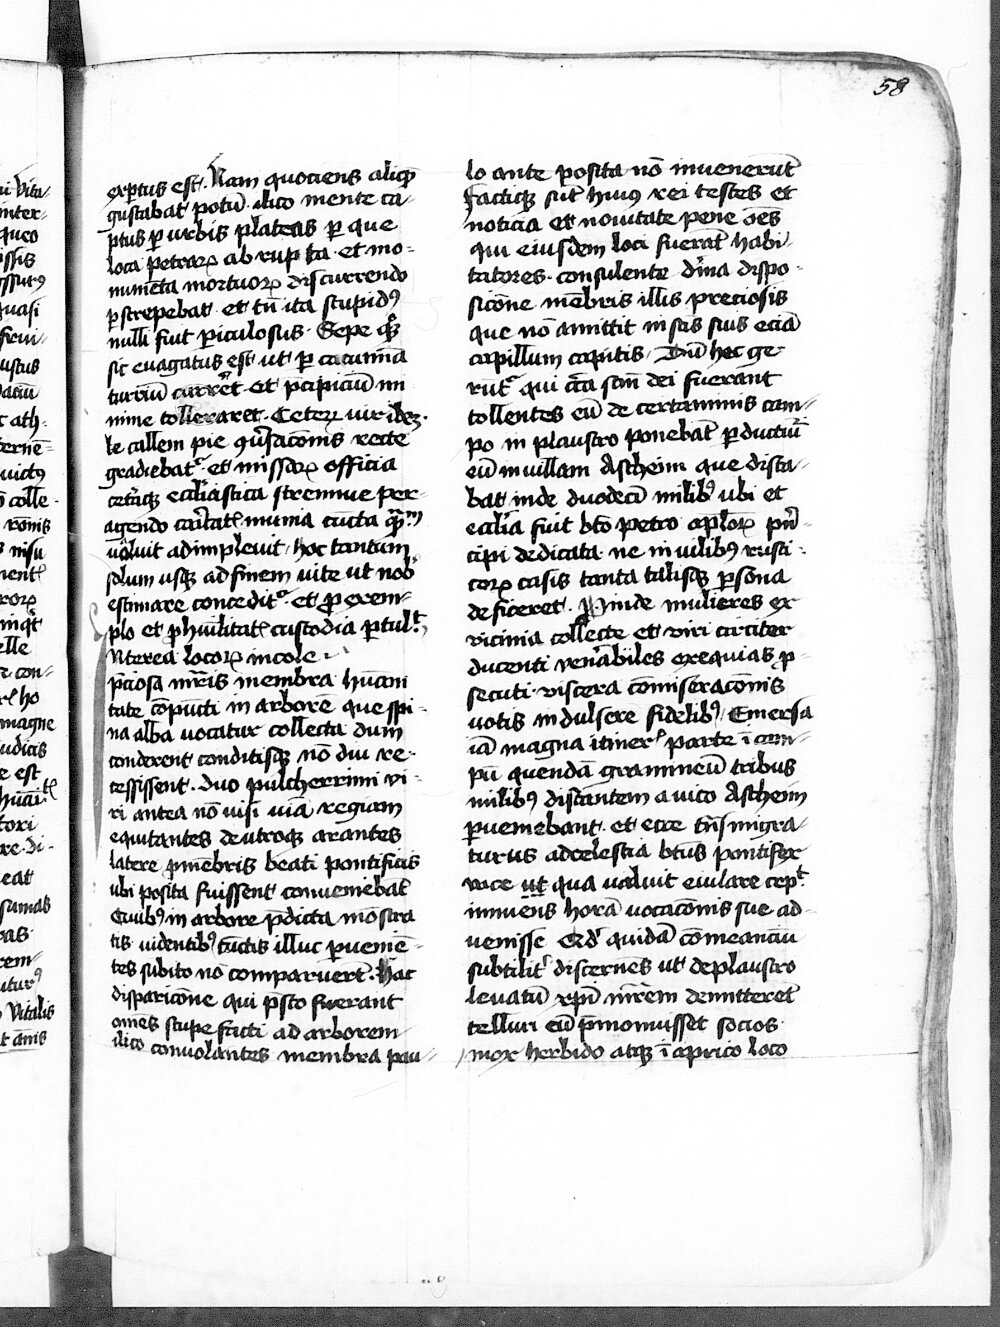 58
expertus est. Nam quociens aliqͥd
gustabat potū. ilico mente ca-
ptus ꝑ urbis plateas ꝑ que
loca petraꝝ abrupta et mo-
numēta mortuoꝝ discurrendo
ꝑstrepebat et tn̄ ita stupidꝰ
nulli fuit ꝑiculosus. Sepe
sic euagatus est ut ꝑ cacumīa
turriū curreret et p̄cipiciū mi
nime tolleraret. Ceteꝝ vir
le callem pie recte
gradiebatᷣ et missaꝝ officia
ceteraqꝫ eccl̄iastica strennue per-
agendo munia cūcta
uoluit adimpleuit hoc tantum
solum usqꝫ ad finem uite ut nob̵
estimare conceditᷣ et ꝓ exem-
plo et ꝓ hūilitatꝭ custodia ꝑtulꝭt
Nterea locoꝝ incole
p̄ciosa mr̄is membra hūani
tate cōpūcti in arborē que spi-
na alba uocatur collecta dum
conderent conditisqꝫ nō diu re-
cessissent. duo pulcherrimi vi-
ri antea nō uisi uiā regiam
equitantes de utroqꝫ arantes
latere ꝓ mēbris beati pontificis
ubi posita fuissent conueniebāt
Quibꝰ in arbore p̄dicta mōstra
tis uidentibꝰ cūctis illuc ꝑueniē-
tes subito nō comparuerūt. Hac
disparicōne qui p̄sto fuerant
om̄es stupefacti ad arborem
ilico conuolantes membra pau-
lo ante posita nō inuenerūt
Factiqꝫ sūt huiꝰ rei testes et
noticia et nouitate pene om̄s
qui eiusdem loci fuerāt habi-
tatores. consulente diuīa dispo-
sicōne mēbris illis preciosis
que nō amittit in scīs suis eciā
capillum capitis. Dū hec ge-
rūtᷣ qui cīta scm̄ dei fuerant
tollentes eū de certaminis cam-
po in plaustro ponebāt ꝑducturi
eū in uillam Ascheim que dista-
bat inde duodecī milibꝰ ubi et
eccl̄ia fuit bt̄o petro apl̄oꝝ prī-
cipi dedicata ne in uilibꝰ rusti-
coꝝ casis tanta talisqꝫ ꝑsona
deficeret. Proinde mulieres ex
vicinia collecte et viri circiter
ducenti venerabiles exequias ꝓ-
secuti viscera cōmiseracōnis
uotis indulsere fidelibꝰ. Emersa
iā magna itinerꝭ parte ī cam-
pū quendā gramineū tribus
milibꝰ distantem a uico Ascheim
ꝑueniebant. et ecce tn̄s migra-
turus ad celestia bt̄us pontifex
uoce ut qua ualuit eiulare cepꝭt
innuens horā vocacōnis sue ad-
uenisse. quidā cōmeanciū
subtilitꝭ discernēs ut de plaustro
leuatū xp̄ū mr̄em demitterēt
telluri eū p̄monuisset socios
mox herbido atqꝫ ī aprico loco